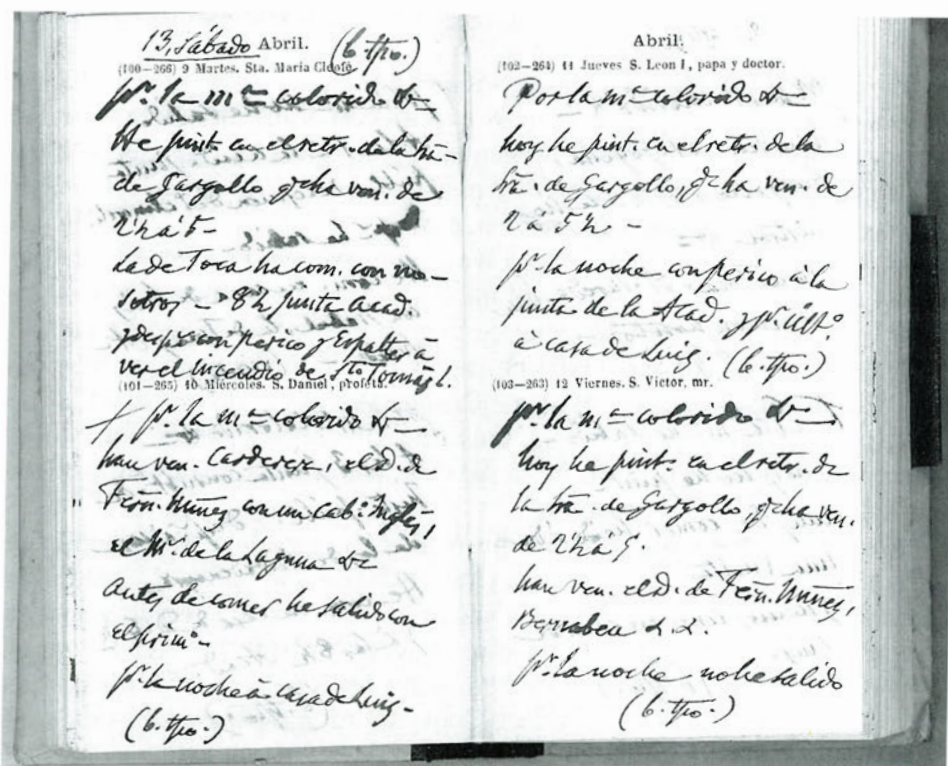 13, Sábado Abril. (b. tpo.)
(100—266) 9 Martes. Sta. María Cleofé.
pr. la mª colorido &
He pint. en el retr. de la Srª
de Gargollo, q. ha ven. de
2 h á 5-
La de Toca ha com. con no-
sotros - 8 h junta Acad.
y desp. con perico y Espalter á
ver el incendio de Sto Tomás
(101—265) 10 Miércoles. S. Daniel, profeta.
pr. la mª colorido &
han ven. Carderera, el D. de
Fern. Nuñez con un cab. Inglés,
el M. de la Laguna &
Antes de comer he salido con
el primº-
pr. la noche á casa de Luis-
(b. tpo.)
Abril.
(102—264) 11 Jueves S. Leon I, papa y doctor.
Por la mª colorido &
hoy he pint. en el retr. de la
Srª. de Gargollo, q. ha ven. de
2 á 5 h -
pr. la noche con perico á la
junta de la Acad. y pr. últº
á casa de Luis. (b. tpo.)
(103—263) 12 Viernes. S. Victor, mr.
pr. la mª colorido &
hoy he pint. en el retr. de
la Srª. de Gargollo, q. ha ven.
de 2 h á 5.
han ven. el D. de Fern. Nuñez,
Bernabeu &. &.
pr. la noche no he salido
(b. tpo.)